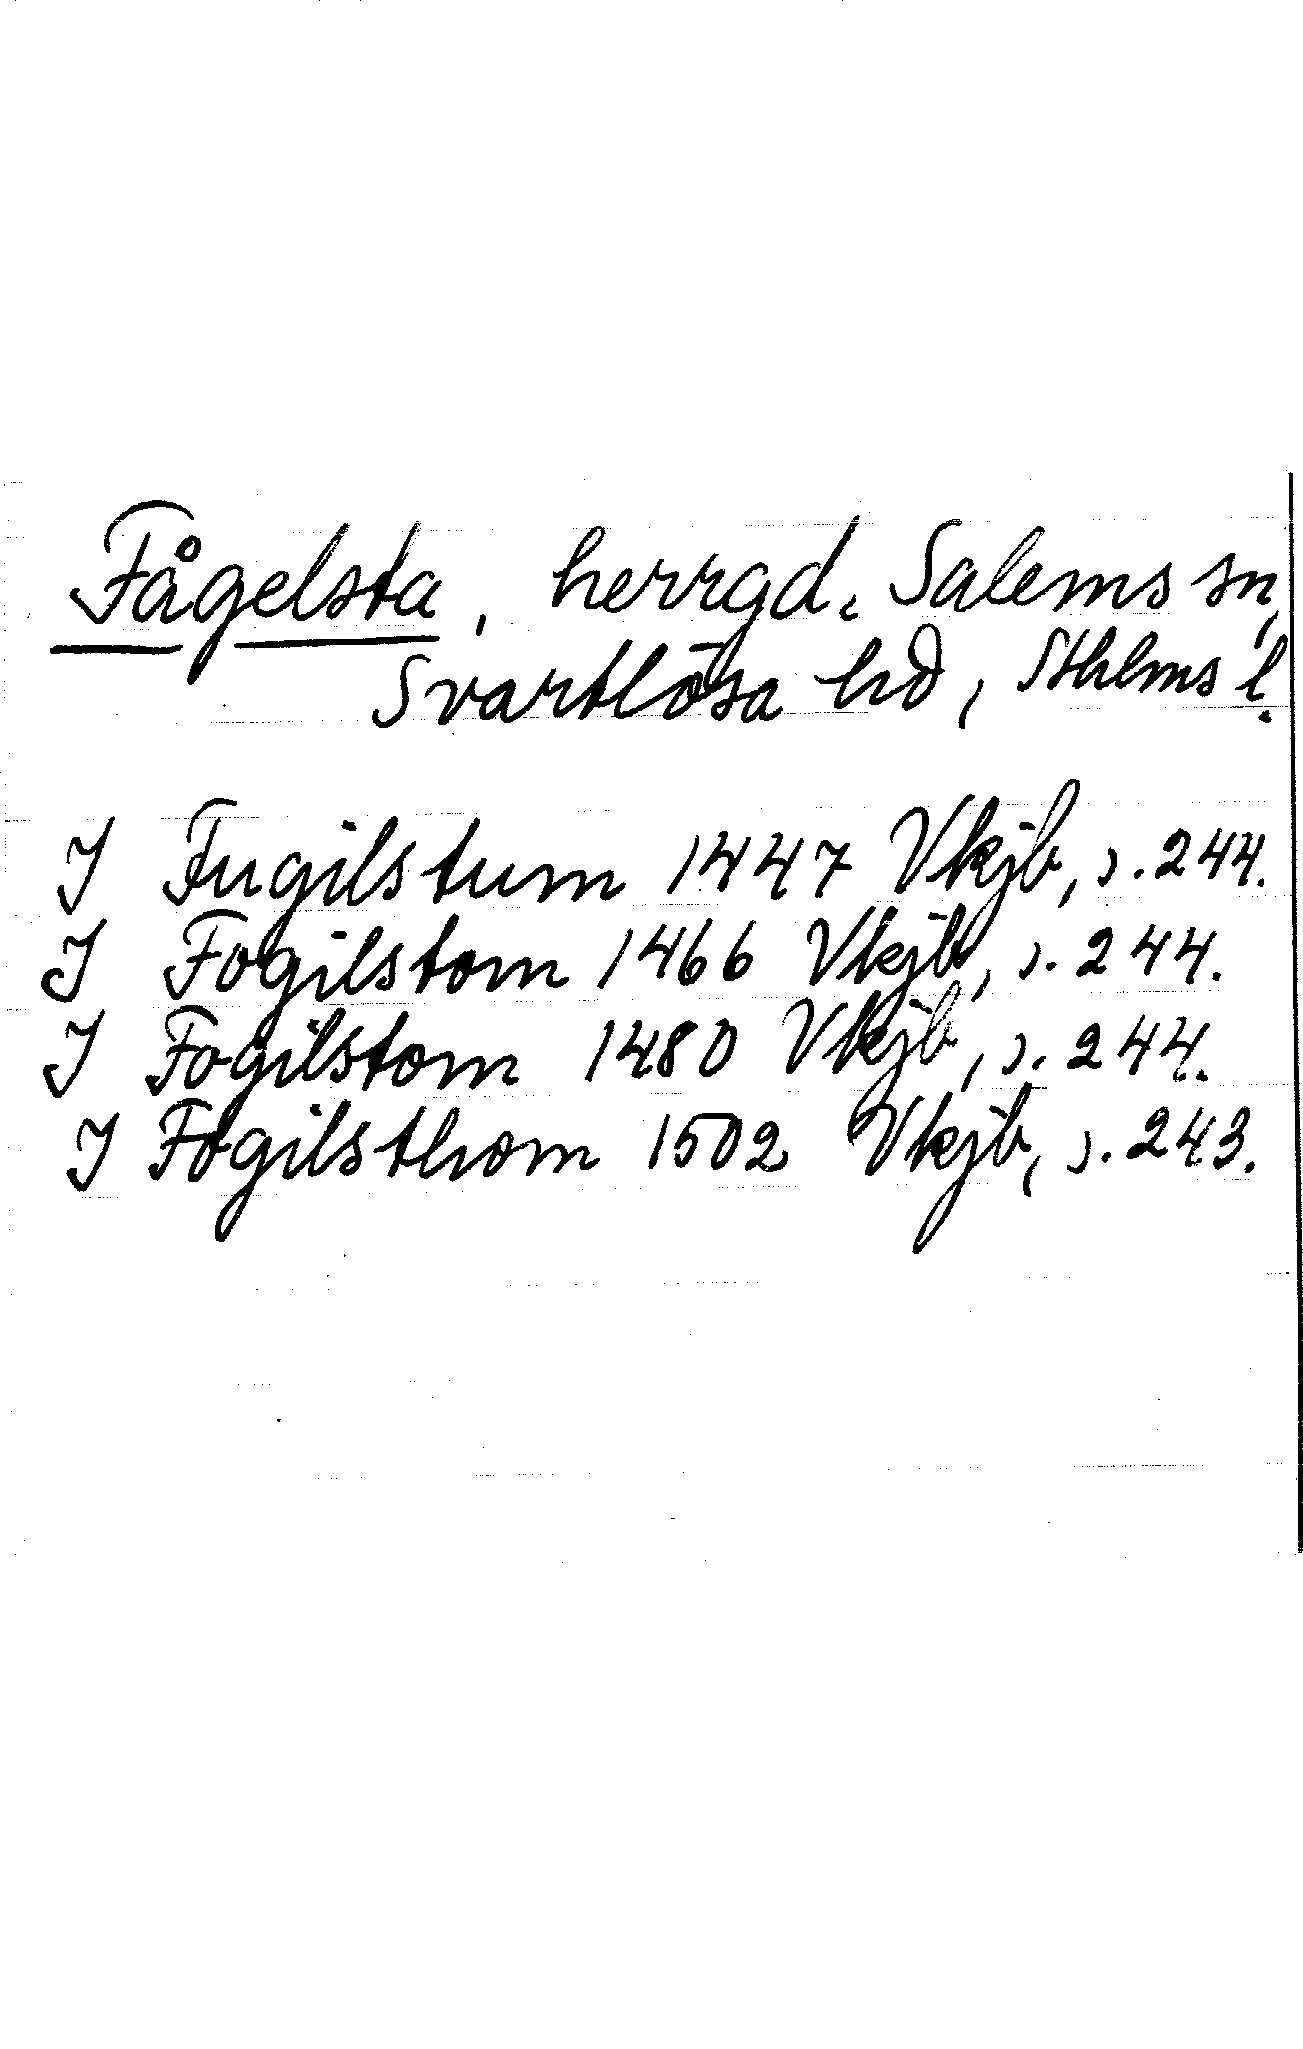 Fågelsta, herrgd. Salems sn,
Svartlösa hd, Sthlms l.
J Fugilstum 1447 Vkjb, s. 244.
J Fogilstom 1466 Vkjb, s. 244.
J Fogilstom 1480 Vkjb, s. 244.
J Fogilsthom 1502 Vkjb, s. 243.